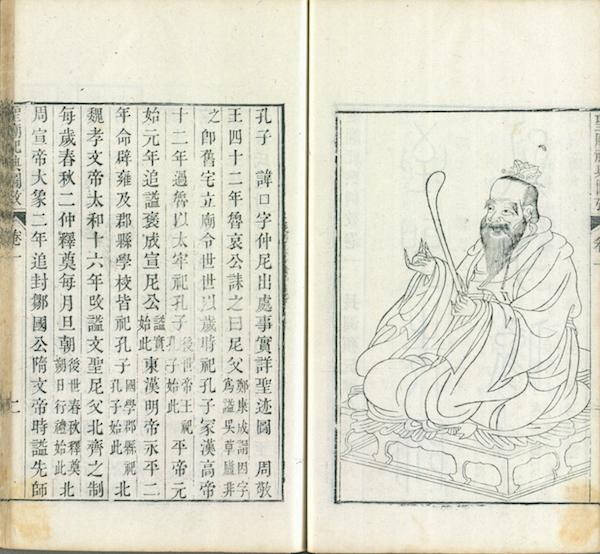 聖廟祀典圖攷 卷一
孔子 諱口字仲尼出處事實詳聖迹圖 周敬
王四十二年魯哀公誄之曰尼父鄭康成謂因字爲諡吳草廬非
之即舊宅立廟令世世以歲時祀孔子家漢高帝
十二年過魯以太牢祀孔子後世帝王祀孔子始此平帝元
始元年追諡褒成宣尼公諡實始此東漢明帝永平二
年命辟雍及郡縣學校皆祀孔子國學郡縣祀孔子始此北
魏孝文帝太和十六年攺諡文聖尼父北齊之制
每歲春秋二仲釋奠每月旦朝後世春秋釋奠朔日行禮始此北
周宣帝大象二年追封鄒國公隋文帝時諡先師
聖廟祀典圖攷 卷一